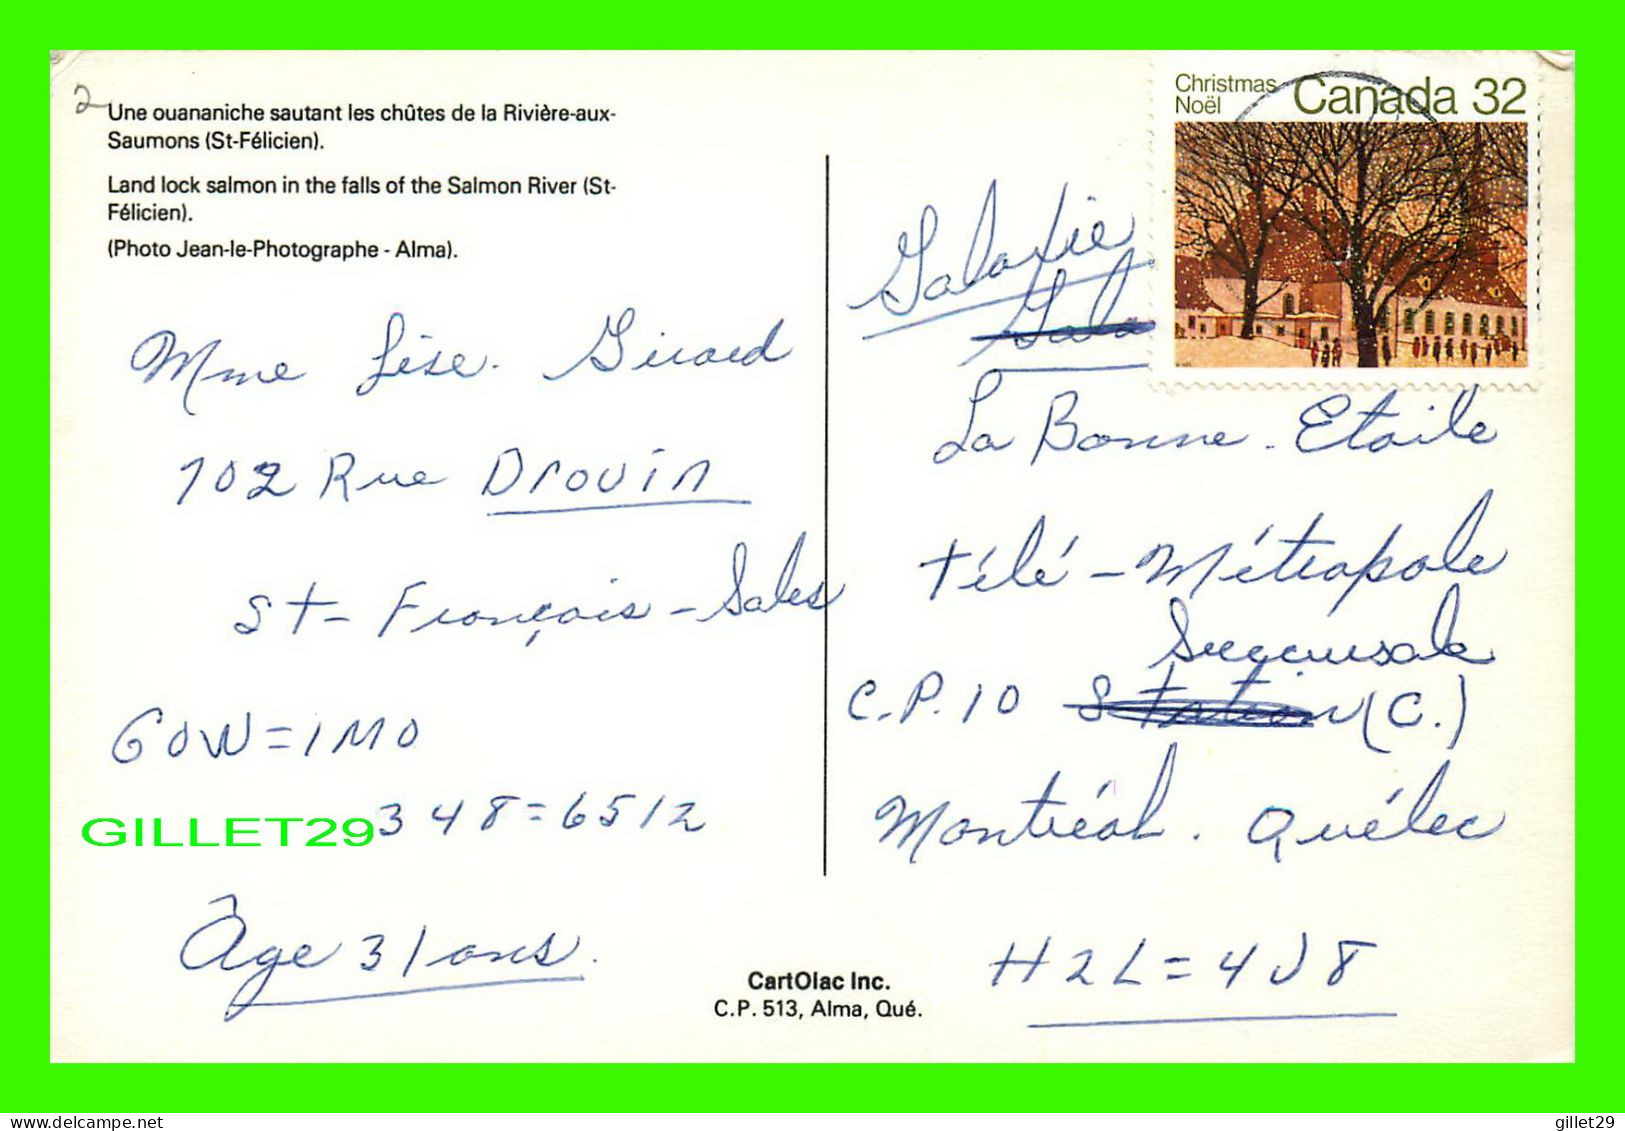 2
Une ouananiche sautant les chûtes de la Rivière-aux-
Saumons (St-Félicien).
Land lock salmon in the falls of the Salmon River (St-
Félicien).
(Photo Jean-le-Photographe - Alma).
Mme Lise. Girard
102 Rue Drouin
St-François-Sales
GOW=1MO
348=6512
Âge 31 ans.
GILLET29
CartOlac Inc.
C.P. 513, Alma, Qué.
Christmas
Noël
Canada 32
Galaxie
Gala
La Bonne. Etoile
Télé-Métropole
Succursale
C.P. 10 Station (C.)
Montréal. Québec
H2L=4J8
delcampe.net
gillet29